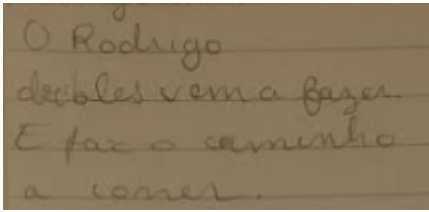 O Rodrigo
dribles vem a fazer.
E faz o caminho
a correr.